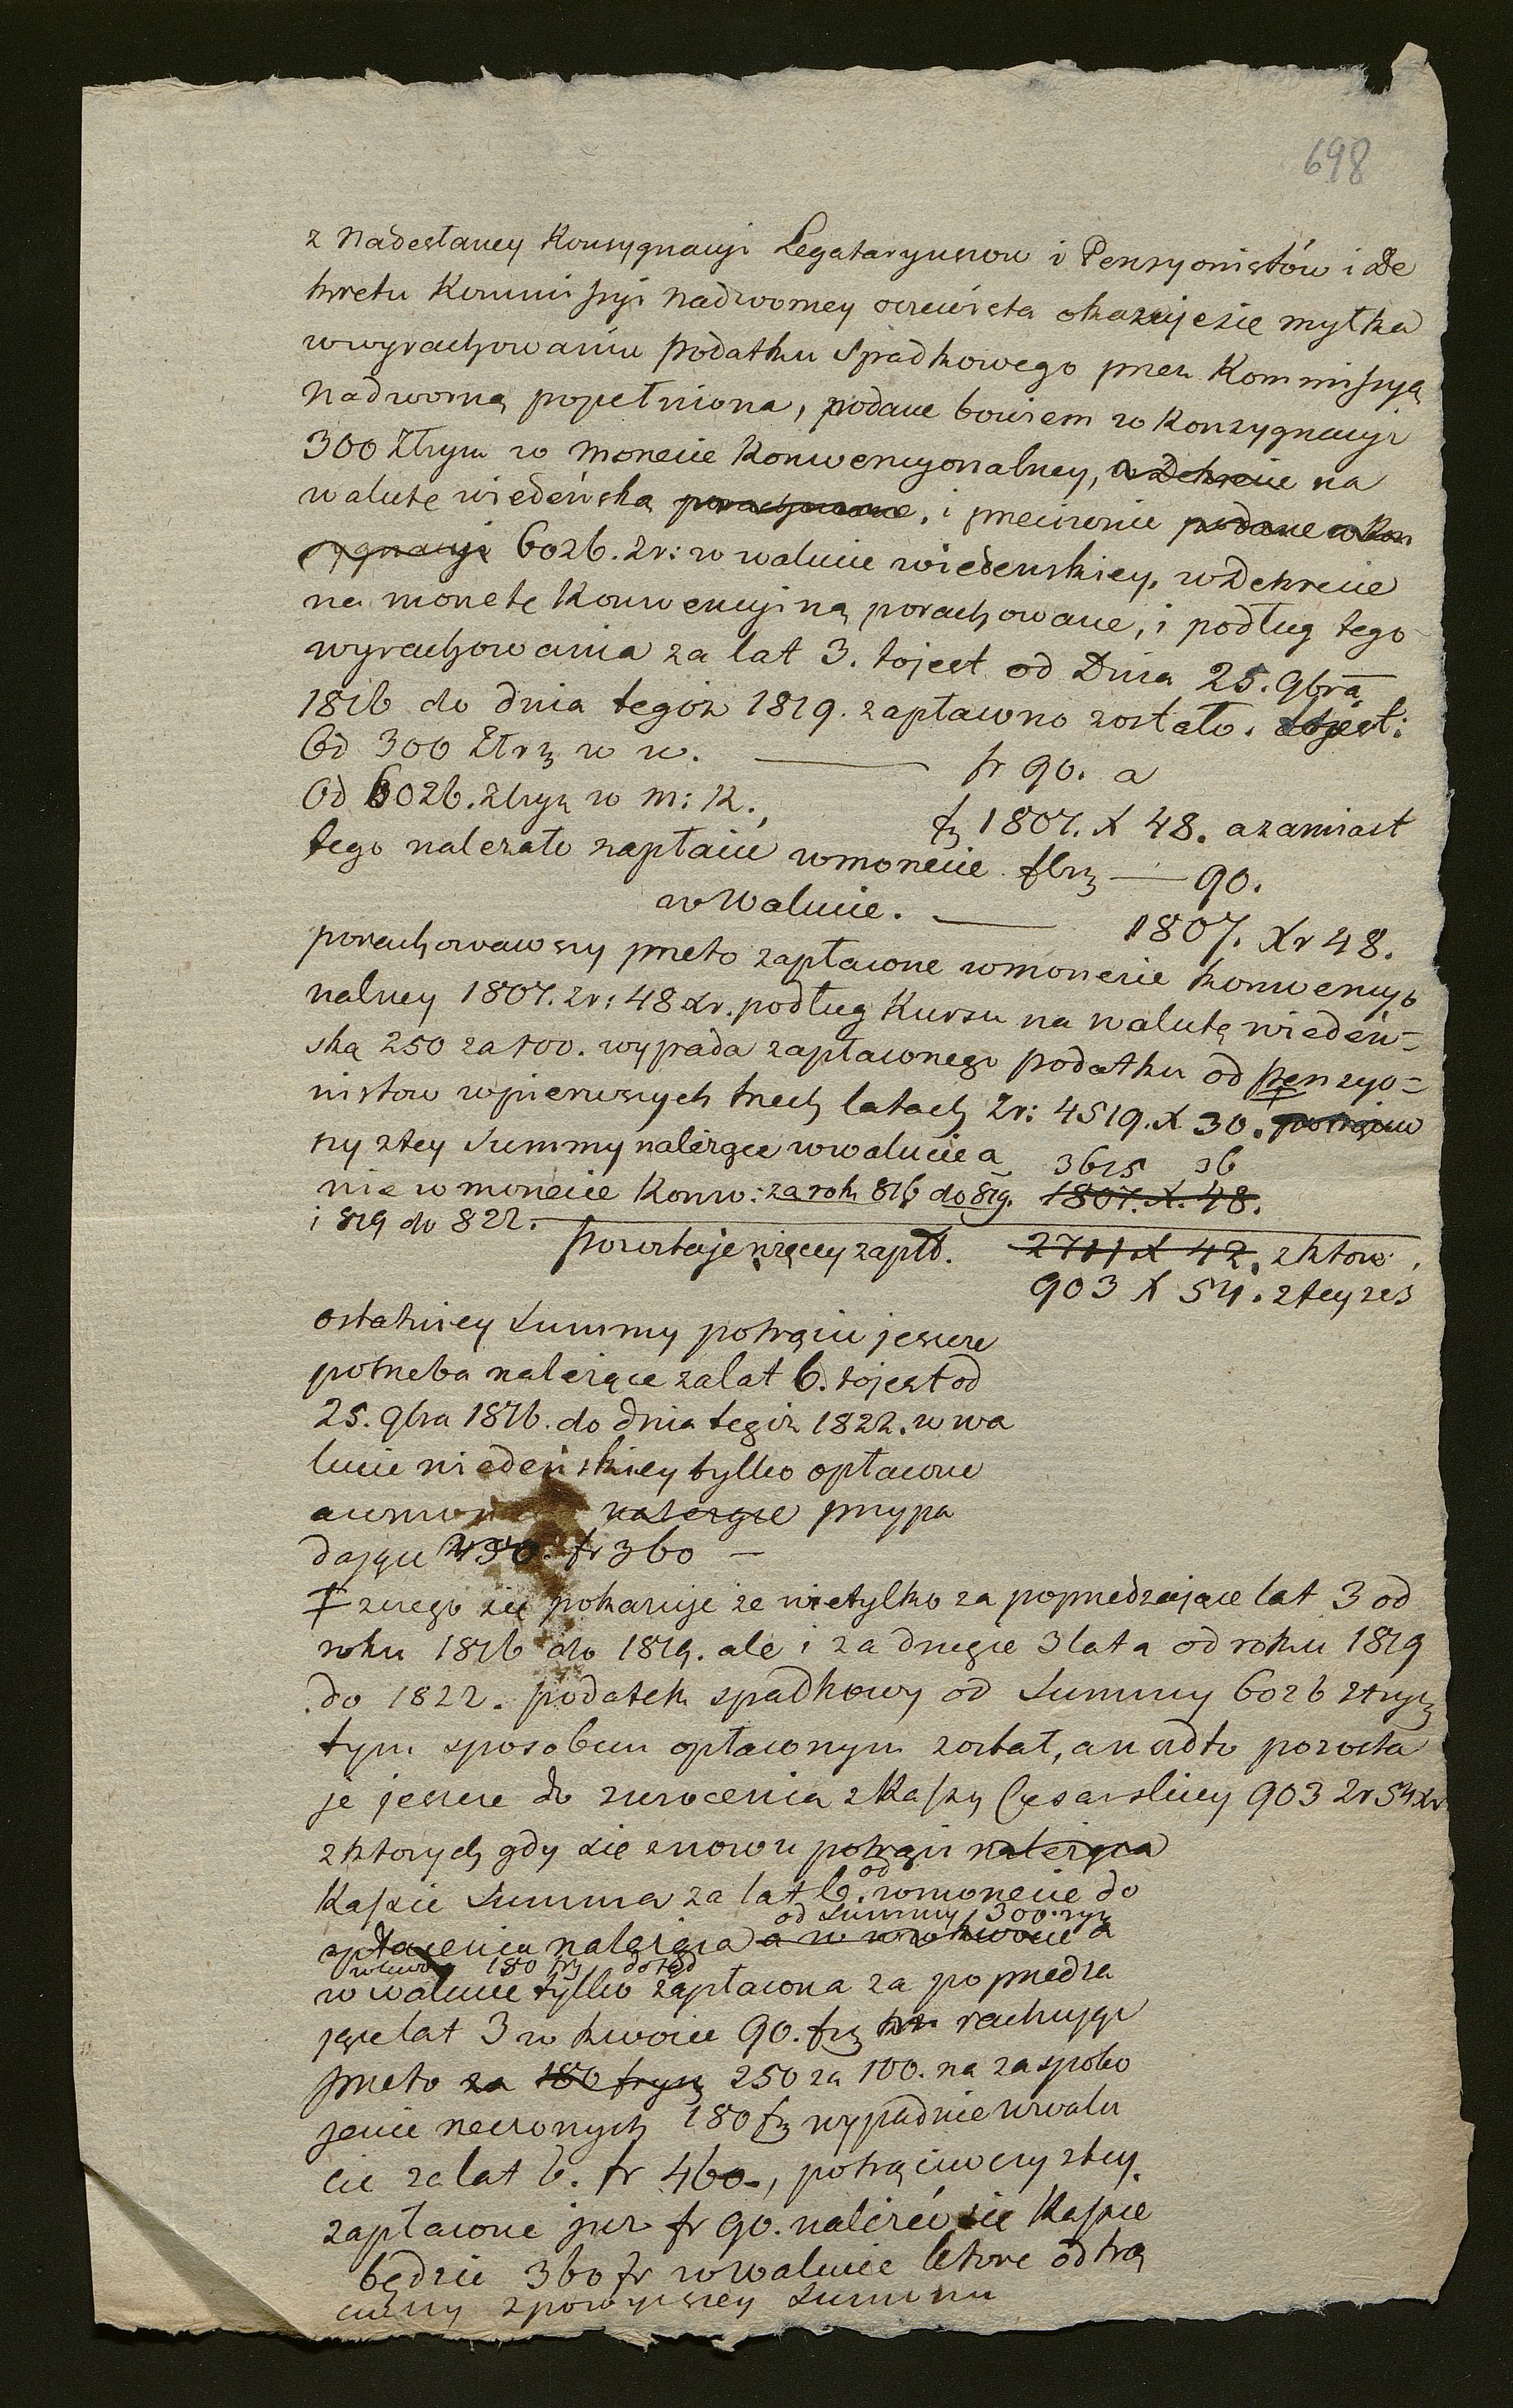 698
z Nadesłaney Konsygnacyi Legataryuszow i Pensyonistów i De
kretu Kommissyi Nadworney oczewista okazuje sie myłka
w wyrachowaniu podatku Spadkowego przez Kommissyą
Nadworną popełniona, podane bowiem w Konsygnacyi
300 Złryn w Monecie Konwencyonalney, w Dekrecie na
walutę wiedeńską porachowane, i przeciwnie podane w Kon
sygnacyi 6026. Zr: w walucie wiedenskiey, w Dekrecie
na monetę Konwencyiną porachowane, i podług tego
wyrachowania za lat 3. to jest od Dnia 25. 9bra
1816 do dnia tegoż 1819. zapłacono zostało. to jest:
Od 300 Złrz w w. — fr 90. a
Od 6026. złryn w M: K., fr 1807. X 48. a zamiast
tego należało zapłacić w monecie flrz — 90.
w Walucie. — 1807. Xr 48.
porachowawszy przeto zapłacone w monecie konwencyo
nalney 1807. Zr: 48 xr. podług Kursu na walutę wiedeń=
ską 250 za 100. wypada zapłaconego podatku od Penzyo=
nistow w pierwszych trzech latach Zr: 4519. X 30. potrąciw
szy z tey Summy należące w walucie a 3615 36
nie w monecie Konw: za rok 816 do 819. 1807. X. 48.
i 819 do 822.
pozostaje więcey zapłć. 2711 X 42. z ktorey
903 X 54. z tey zes
ostatniey Summy potrącić jeszcze
potrzeba należące za lat 6. to jest od
25. 9bra 1816. do dnia tegoż 1822. w wa
lucie wiedeńskiey tylko opłacone
należące przypa
dające 450. fr 360 —
‡ z czego się pokazuje że nie tylko za poprzedzające lat 3 od
roku 1816 do 1819. ale i za drugie 3 lata od roku 1819
do 1822. podatek spadkowy od Summy 6026 złryn
tym sposobem opłaconym został, a nadto pozosta
je jeszcze do zwrocenia z Kassy Cesarskiey 903 Zr 54 xr
z ktorych gdy sie znowu potrąci należąca
Kassie Summa za lat 6. w monecie do
od Summy 300 ryn
opłacenia należąca a w w kwocie a
w kwocie 180 fr dotąd
w walucie tylko zapłacona za poprzedza
jące lat 3 w kwocie 90. fr rachując
przeto za 180 fryn 250 za 100. na zaspoko
jenie rzeczonych 180 fr wypadnie w walu
cie za lat 6. fr 460., potrąciwszy z tey
zapłacone juz fr 90. należeć sie Kassie
będzie 360 fr w walucie ktore odtrą
ciwszy z powyższey Summy